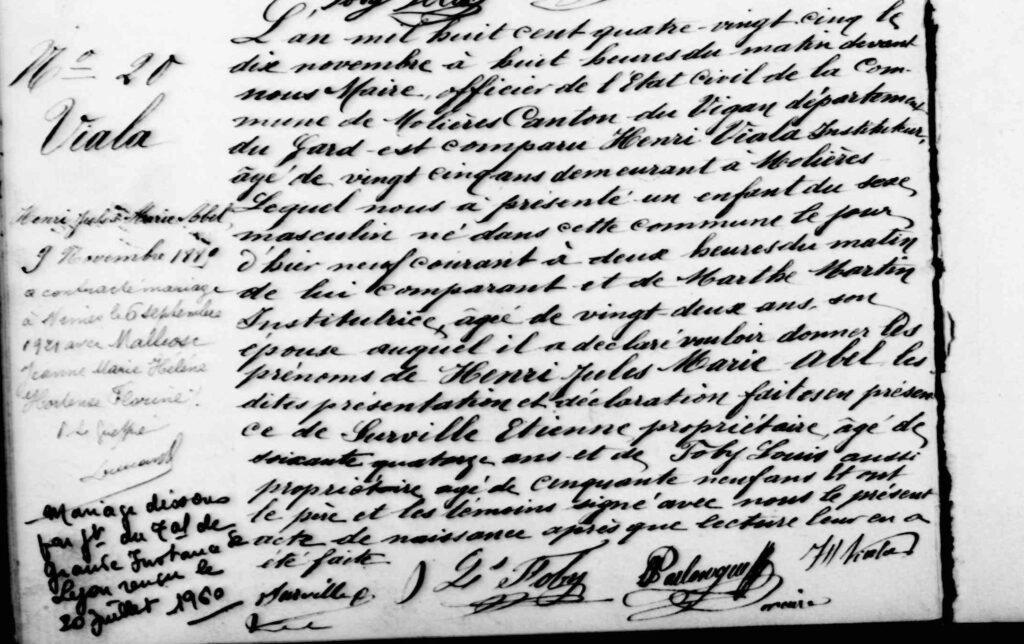 Nº 20
Viala
Henri Jules Marie Abel
9 Novembre 1885
a contracté mariage
à Nimes le 6 septembre
1921 avec Mallrose
Jeanne Marie Hélène
Hortense Florine.
P. le Greffe
Mariage dissous
par jt. du Tal de
Grande Instance de
Lyon rendu le
20 Juillet 1960
L'an mil huit cent quatre-vingt cinq le
dix novembre à huit heures du matin devant
nous Maire, officier de l'Etat Civil de la Com-
mune de Molières Canton du Vigan département
du Gard est comparu Henri Viala Instituteur,
âgé de vingt cinq ans demeurant à Molières
Lequel nous à présenté un enfant du sexe
masculin né dans cette commune le jour
d'hier neuf courant à deux heures du matin
de lui comparant et de Marthe Martin
Institutrice, âgée de vingt deux ans, son
épouse auquel il a déclaré vouloir donner les
prénoms de Henri Jules Marie Abel. les
dites présentation et déclaration faites en présen
ce de Surville Etienne propriétaire, agé de
soixante quatorze ans et de Toby Louis aussi
propriétaire agé de cinquante neuf ans Et ont
le père et les témoins signé avec nous le présent
acte de naissance après que lecture leur en a
été faite
Surville e. Ls Toby H Viala
maire